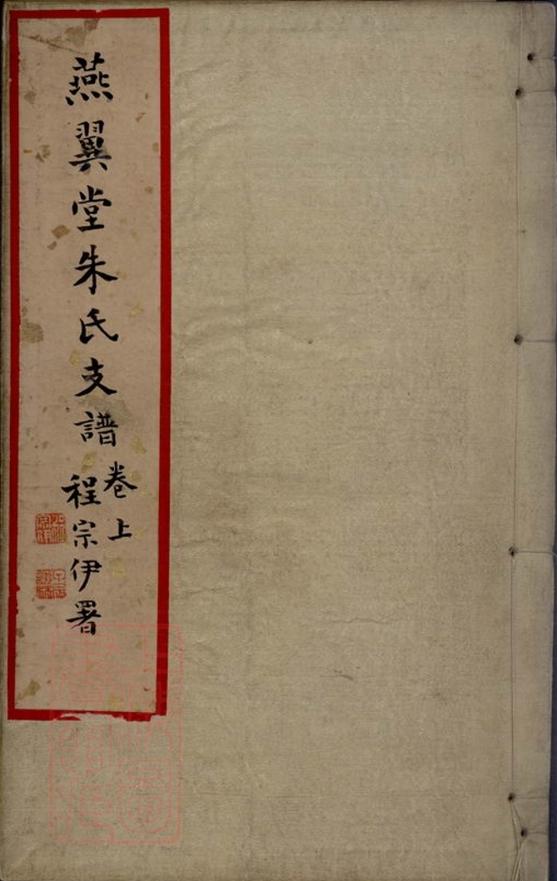 燕翼堂朱氏支譜
卷上
程宗伊署